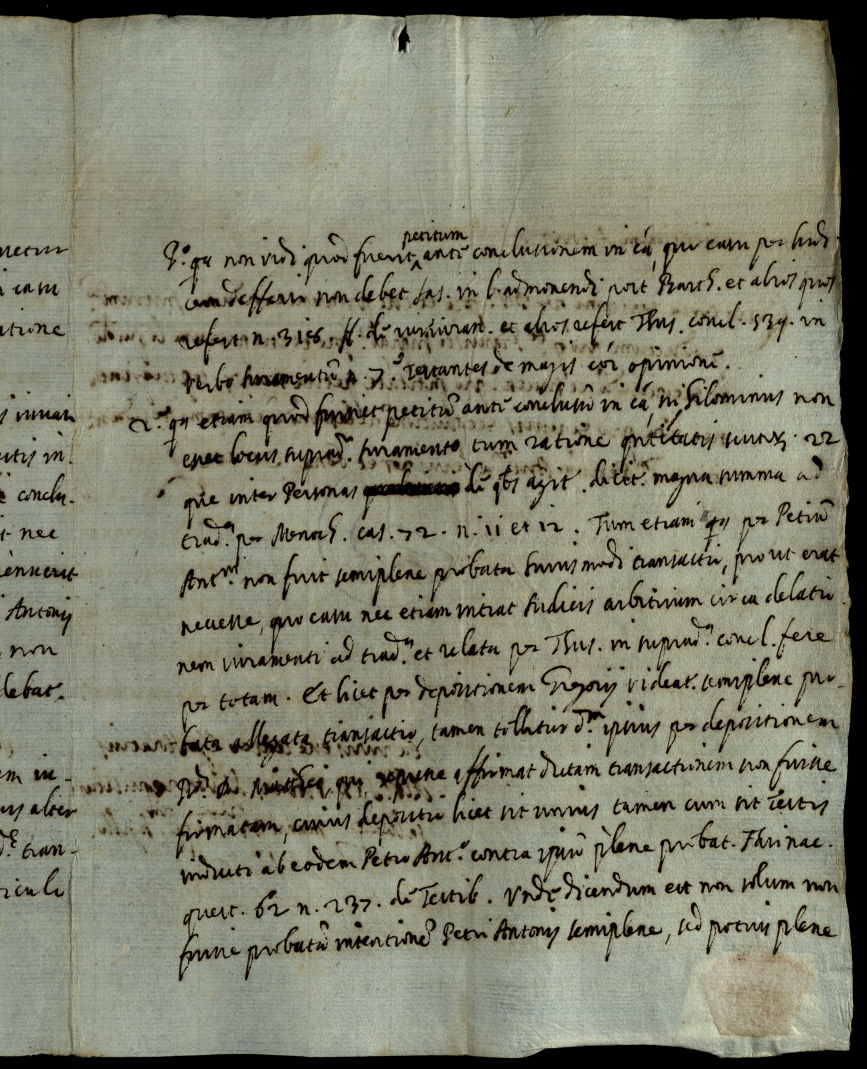 uetur
i casu
ratione
s iuvari
utis in.
conclu.
t nec
enuerit
Antonij
non
debat.
em in-
us alter
tran-
riculi
petitum
P.º qa non vidi quod fuerit ^ antē conclusionem in cā, quo casu per Iudi
cem defferri non debet Ias. in l. admonendi post Barth. et alios quos
refert n. 316. ff. de iureiuran. et alios refert Thus. concl. 539. in
verbo Iuramentū n. 7.º testantes de magis cōi opinionē.
2.º qa etiam quod fuisset petitū antē conclusū in cā, nihilominus non
esset locus suprad.º Iuramento tum ratione qntitatis scutor. 22
que inter Personas dē qbs agit. dicit. magna summa ad
trad.a per Menoch. cas. 72. n. 11 et 12. Tum etiam qa per Petrū
Ant.m non fuit semiplene probata huiusmodi transactio, prout erat
necesse, quo casu nec etiam intrat Iudicis arbitrium circa delatio
nem iuramenti ad trad.a et relata per Thus. in suprad.a concl. fere
per totam. Et licet per depositionem Gregorij videat. semiplene pro-
bata allegata transactio, tamen tollitur d.m ipsius per depositionem
qui affirmat dictam transactionem non fuisse
firmatam, cuius depositio licet sit unius tamen cum sit testis
inducti ab eodem Petro Ant.º contra ipsū plene probat. Farinac.
quest. 62 n. 237. dē Testib. Undē dicendum est non solum non
fuisse probatā intentionē Petri Antonij semiplene, sed potius plene